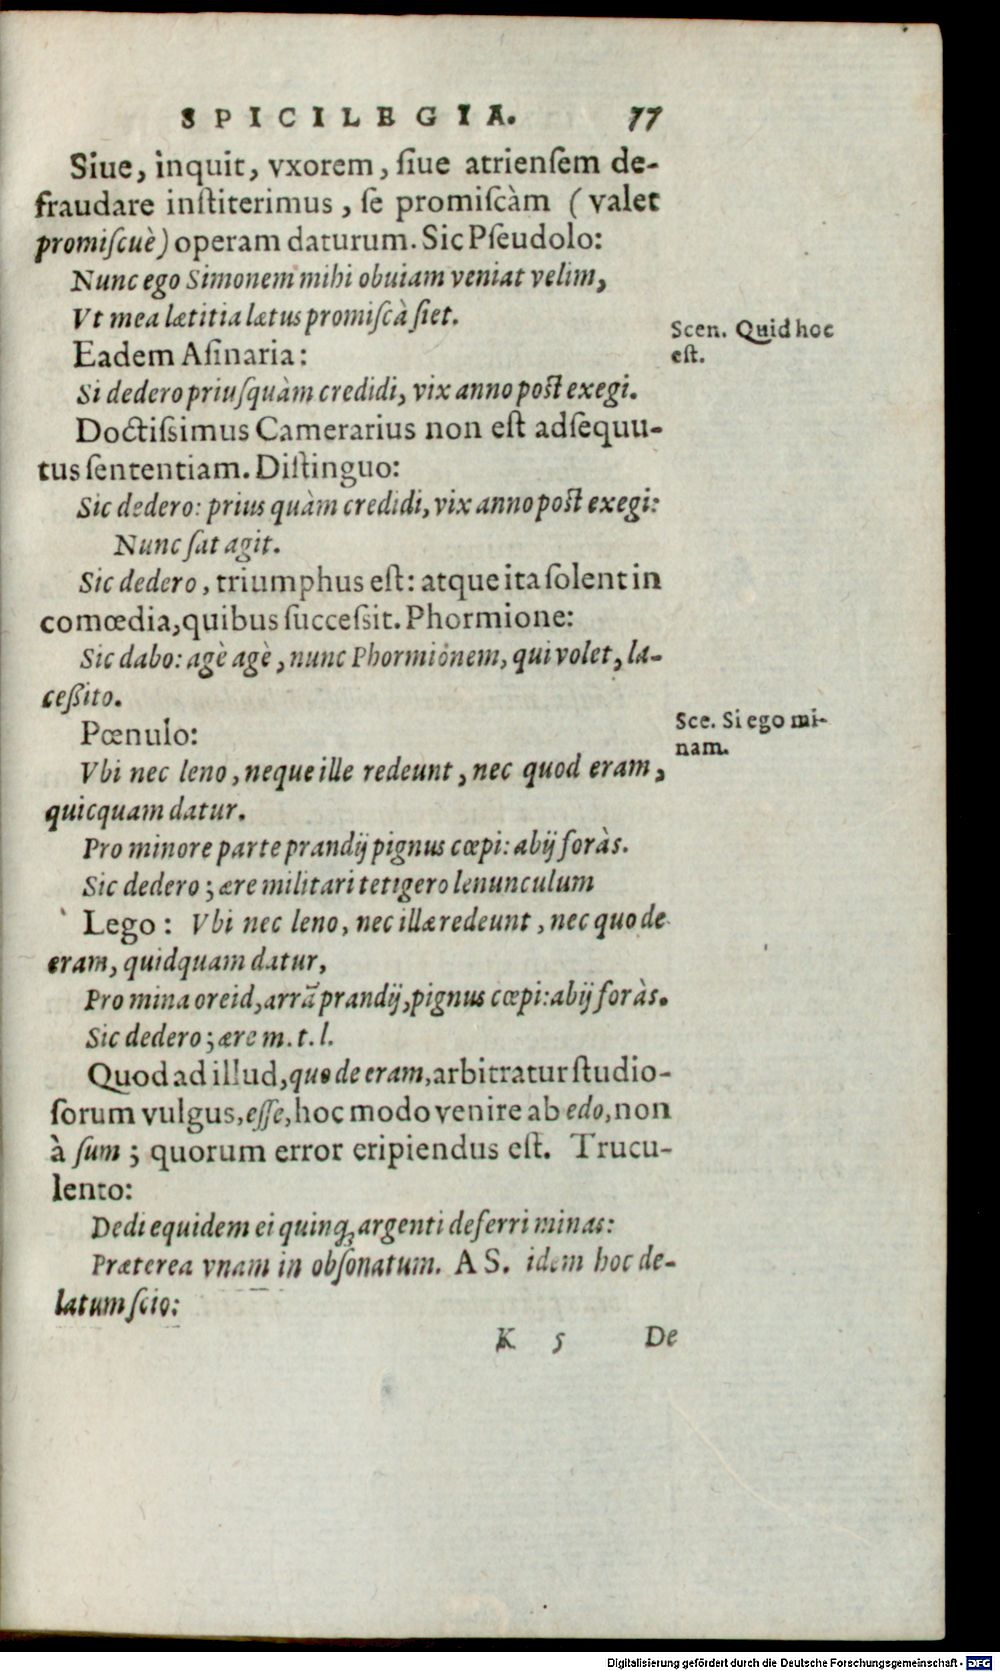 SPICILEGIA. 77
Siue, inquit, vxorem, ſiue atrienſem de-
fraudare inſtiterimus, ſe promiſcàm (valet
promiſcuè) operam daturum. Sic Pſeudolo:
Nunc ego Simonem mihi obuiam veniat velim,
Vt mea lætitia lætus promiſcà ſiet.
Scen. Quid hoc
eſt.
Eadem Aſinaria:
Si dedero priuſquàm credidi, vix anno poſt exegi.
Doctiſsimus Camerarius non eſt adſequu-
tus ſententiam. Diſtinguo:
Sic dedero: prius quàm credidi, vix anno poſt exegi:
Nunc ſat agit.
Sic dedero, triumphus eſt: atque ita ſolent in
comœdia, quibus ſucceſsit. Phormione:
Sic dabo: agè agè, nunc Phormionem, qui volet, la-
ceßito.
Pœnulo:
Sce. Si ego mi-
nam.
Vbi nec leno, neque ille redeunt, nec quod eram,
quicquam datur.
Pro minore parte prandij pignus cœpi: abij foràs.
Sic dedero; ære militari tetigero lenunculum
Lego: Vbi nec leno, nec illæ redeunt, nec quo de
eram, quidquam datur,
Pro mina oreid, arrã prandij, pignus cœpi: abij foràs.
Sic dedero; ære m. t. l.
Quod ad illud, quo de eram, arbitratur ſtudio-
ſorum vulgus, eſſe, hoc modo venire ab edo, non
à ſum; quorum error eripiendus eſt. Trucu-
lento:
Dedi equidem ei quinq́; argenti deferri minas:
Præterea vnam in obſonatum. A S. idem hoc de-
latum ſcio:
K 5 De
Digitalisierung gefördert durch die Deutsche Forschungsgemeinschaft - DFG